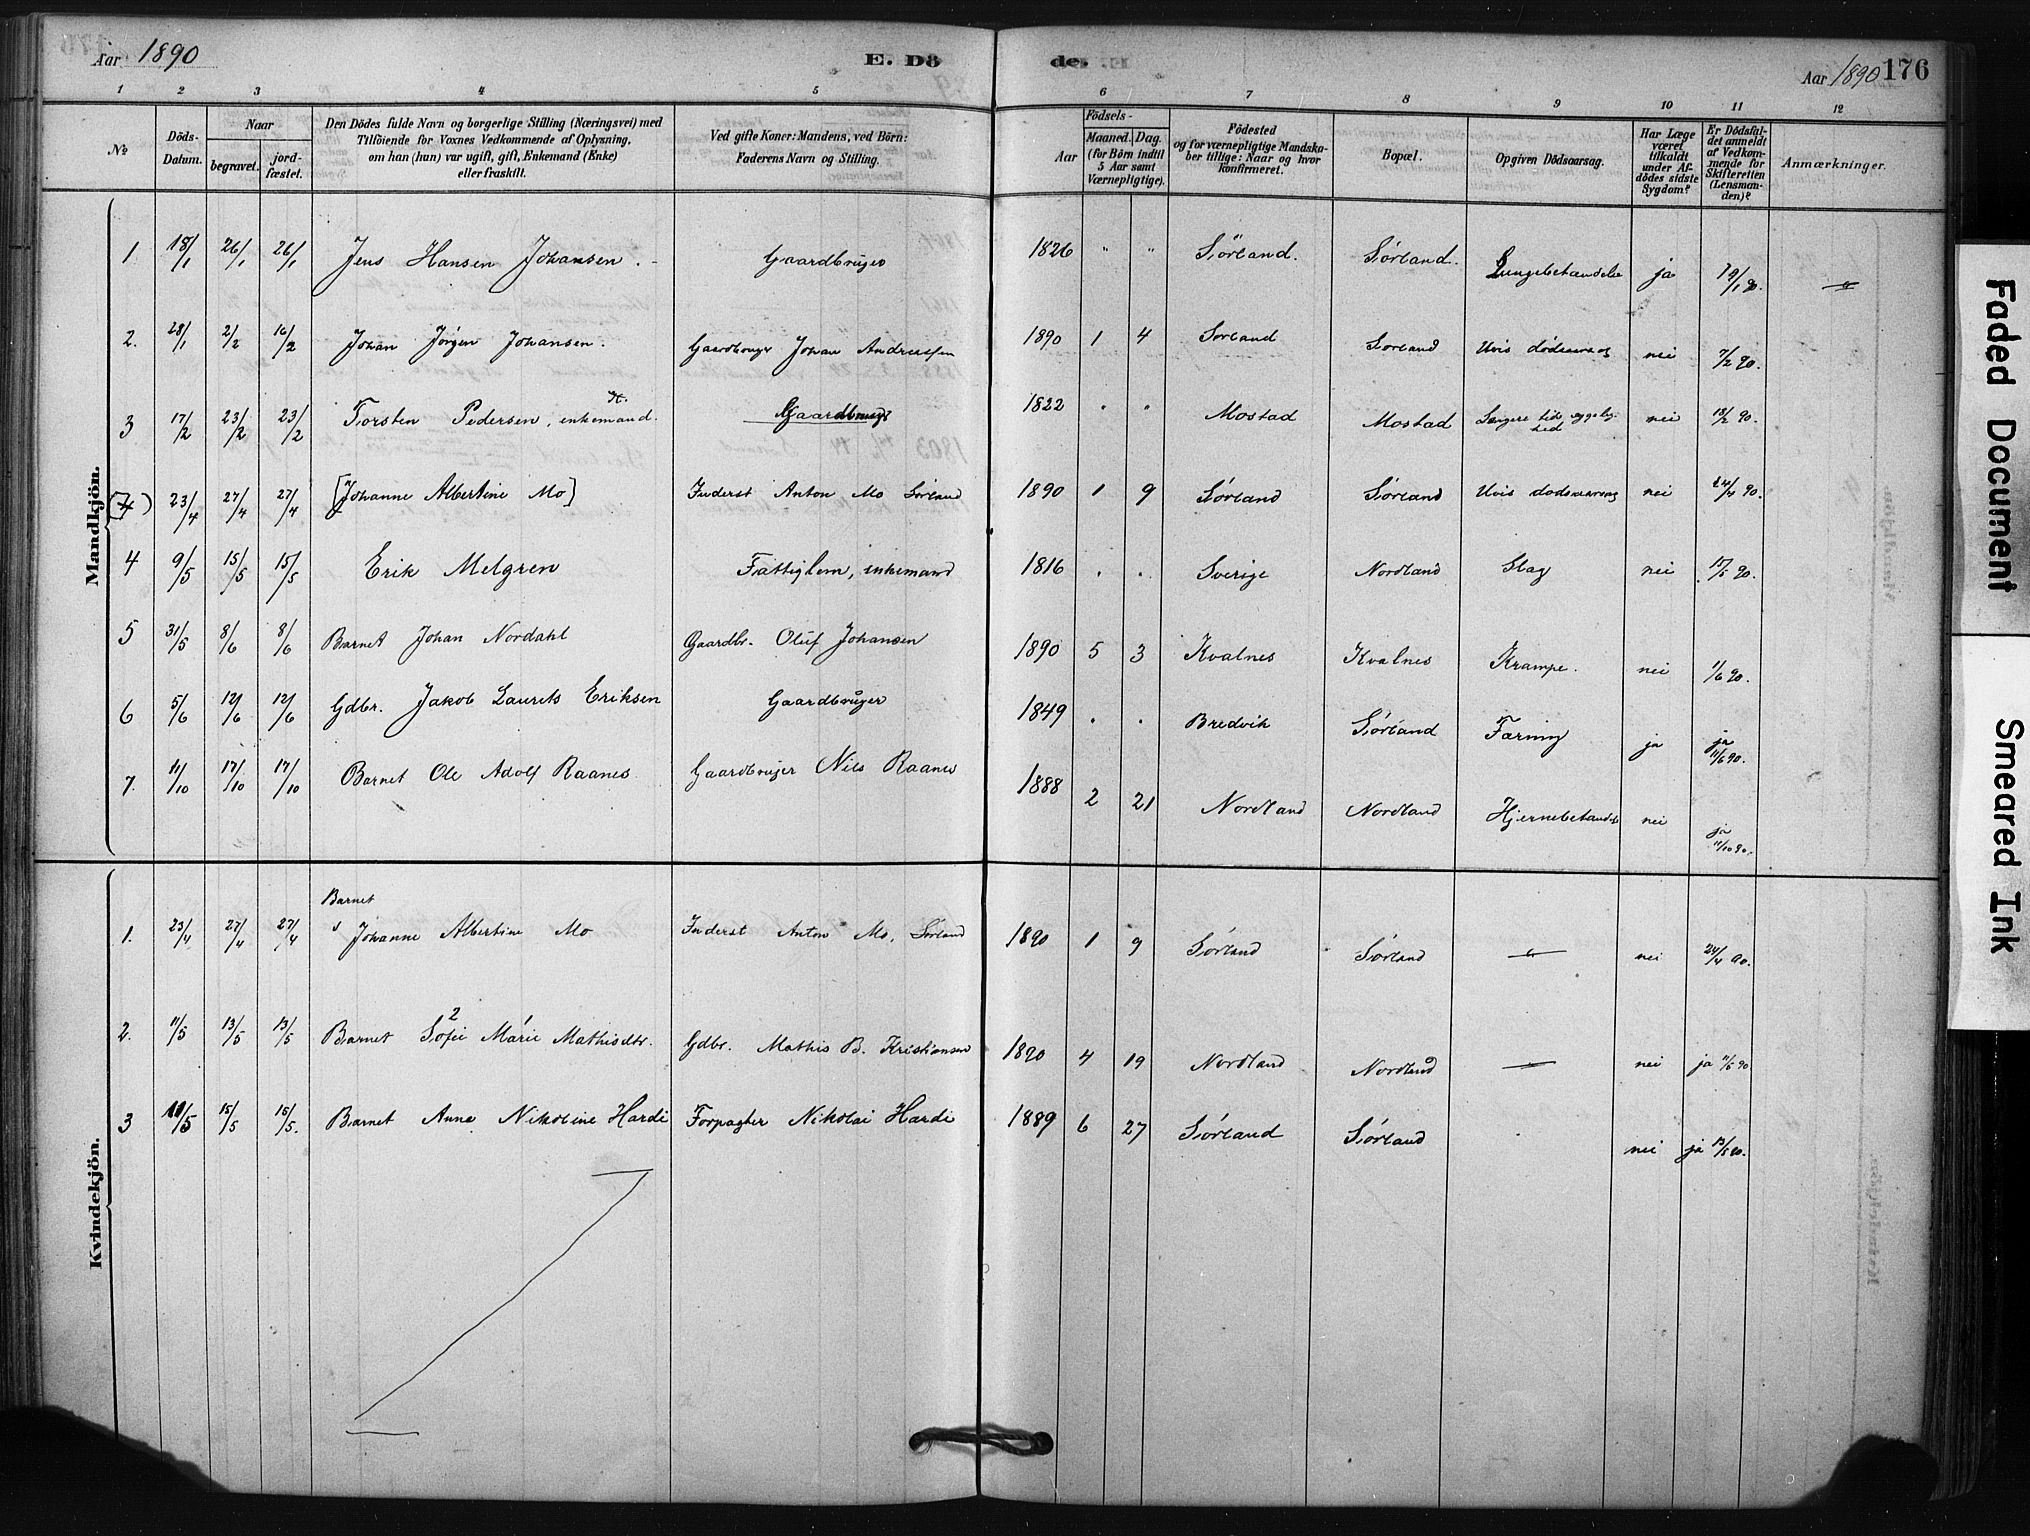 Aar 1890 E. Dö de. Aar 1890 176
1 2 3 4 5 6 7 8 9 10 11 12
No. Döds-Datum. Naar begravet. jordfæstet. Den Dödes fulde Navn og borgerlige Stilling (Næringsvei) med Tilföiende for Voxnes Vedkommende af Oplysning, om han (hun) var ugift, gift, Enkemand (Enke) eller fraskilt. Ved gifte Koner: Mandens, ved Börn: Faderens Navn og Stilling. Födsels- Aar Maaned. Dag. (for Börn indtil 5 Aar samt Værnepligtige). Födested og for værnepligtige Mandskaber tillige: Naar og hvor konfirmeret. Bopæl. Opgiven Dödsaarsag. Har Læge været tilkaldt under Afdödes sidste Sygdom? Er Dödsfaldet anmeldt af Vedkommende for Skifteretten (Lensmanden)? Anmærkninger.
Mandkjön.
1 18/1 26/1 26/1 Jens Hansen Johansen. Gaardbruger 1826 " " Sörland. Sörland. Lungebetændelse ja 19/1 90. "
2. 28/1 2/2 16/2 Johan Jørgen Johansen. Gaardbruger Johan Andreassen 1890 1 4 Sörland Sörland Uvis dødsaarsag nei 7/2 90.
3 17/2 23/2 23/2 Torsten Pedersen, enkemand. Gaardbruger 1822 " " Mostad Mostad Længere tids sygelighed nei 18/2 90.
(7) 23/4 27/4 27/4 [Johanne Albertine Mo] Inderst Anton Mo Sörland 1890 1 9 Sörland Sörland Uvis dødsaarsag nei 24/4 90.
4 9/5 15/5 15/5 Erik Melgren Fattiglem, enkemand 1816 . . Sverige Nordland Slag nei 15/5 90.
5 31/5 8/6 8/6 Barnet Johan Nordahl Gaardbr. Oluf Johansen 1890 5 3 Kvalnes Kvalnes Krampe. nei 1/6 90.
6 5/6 12/6 12/6 Gdbr. Jakob Laurits Eriksen Gaardbruger 1849 . . Bredvik Sörland Tæring ja ja 11/6 90.
7. 11/10 17/10 17/10 Barnet Ole Adolf Raanes. Gaardbruger Nils Raanes 1888 2 21 Nordland Nordland Hjernebetændelse nei ja 11/10 90.
Kvindekjön.
1. 23/4 27/4 27/4 Barnet Johanne Albertine Mo Inderst Anton Mo, Sörland 1890 1 9 Sörland Sörland " nei 24/4 90.
2. 11/5 13/5 13/5 Barnet Sofie 2 Marie Mathisdtr. Gdbr. Mathis B. Kristiansen 1890 4 19 Nordland Nordland " nei ja 11/5 90
3 11/5 15/5 15/5. Barnet Anna Nikoline Hardi Forpagter Nikolai Hardi 1889 6 27 Sörland Sörland nei ja 13/5 90.
Faded Document
Smeared Ink